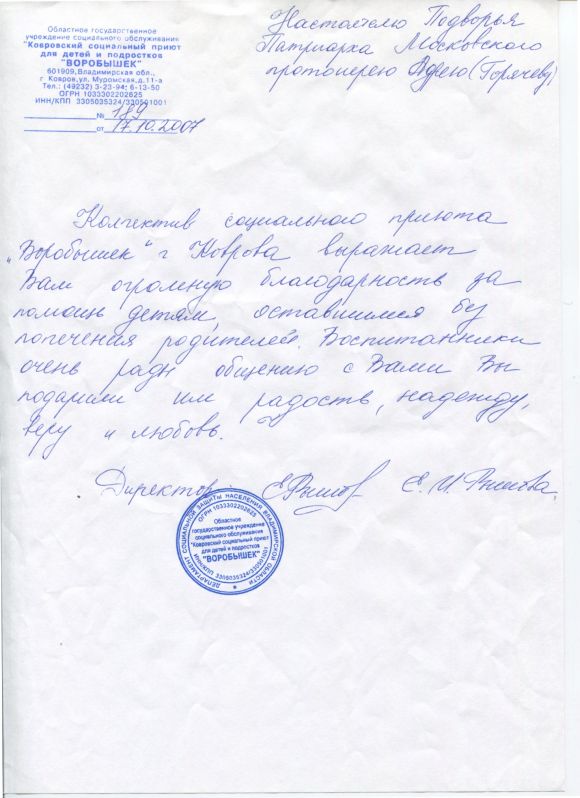 Областное государственное
учреждение социального обслуживания
"Ковровский социальный приют
для детей и подростков
"ВОРОБЫШЕК"
601909, Владимирская обл.,
г Ковров, ул. Муромская, д. 11-а
Тел.: (49232) 3-23-94; 6-13-50
ОГРН 1033302202625
ИНН/КПП 3305035324/330501001
№ 189
от 17.10.2007
Настоятелю Подворья
Патриарха Московского
протоиерею Адрею (Горячеву)
Коллектив социального приюта
„Воробышек" г Коврова выражает
Вам огромную благодарность за
помощь детям, оставшимся без
попечения родителей. Воспитанники
очень рады общению с Вами Вы
подарили им радость, надежду,
веру и любовь.
Директор: Е. И.
ДЕПАРТАМЕНТ СОЦИАЛЬНОЙ ЗАЩИТЫ НАСЕЛЕНИЯ ВЛАДИМИРСКОЙ ОБЛАСТИ
ОГРН 1033302202625
Областное
государственное учреждение
социального обслуживания
"Ковровский социальный приют
для детей и подростков
"ВОРОБЫШЕК"
3305035324/330501001